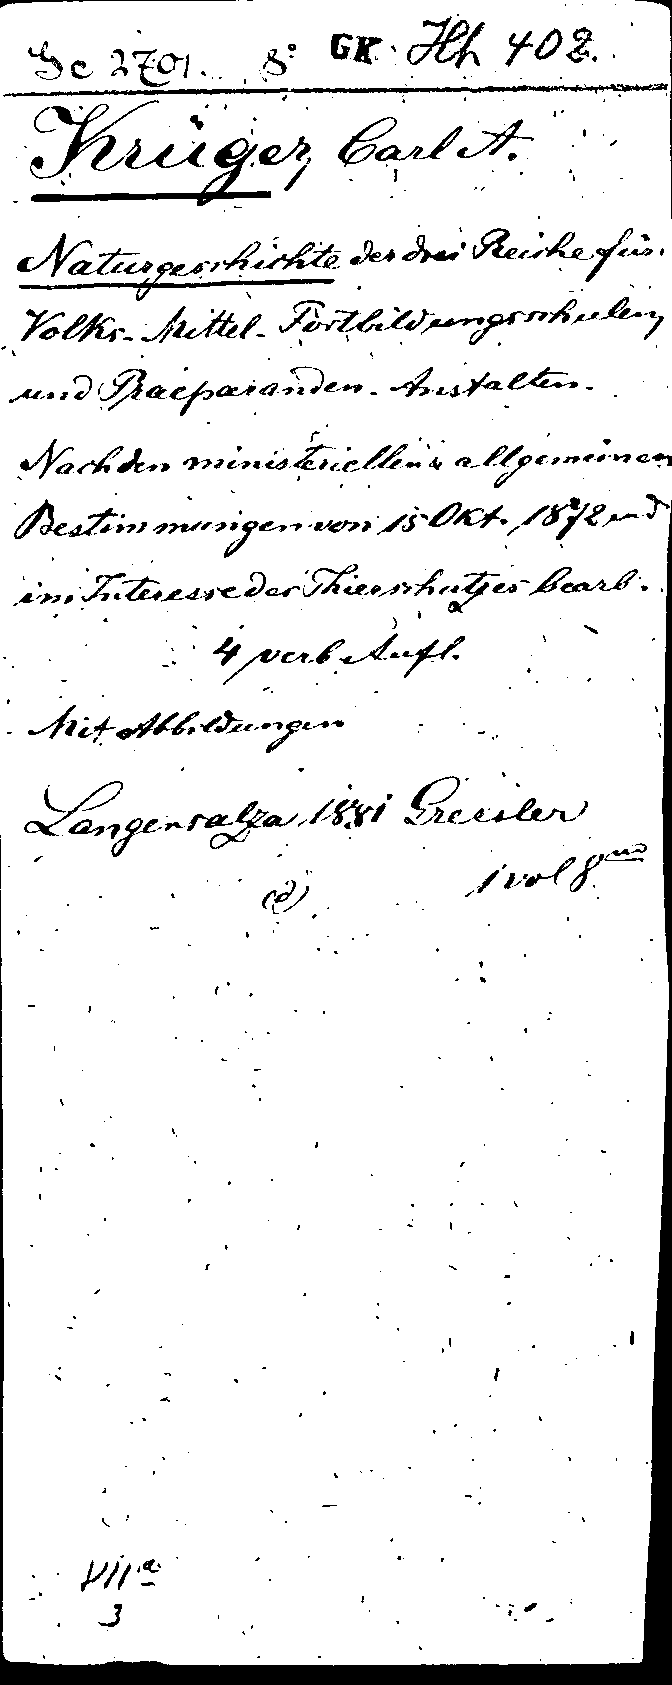 Sc 2701. 8° GK. Hh 402.
Krüger, Carl A.
Naturgeschichte der drei Reiche für
Volks- Mittel- Fortbildungsschulen,
und Praeparanden- Anstalten.
Nach den ministeriellen allgemeinen
Bestimmungen von 15 Okt. 1872 und
im Interesse des Thierschutzes bearb.
4 verb Aufl.
Mit Abbildungen
Langensalza 1881 Gressler
1 vol 8
(d)
VII a
3